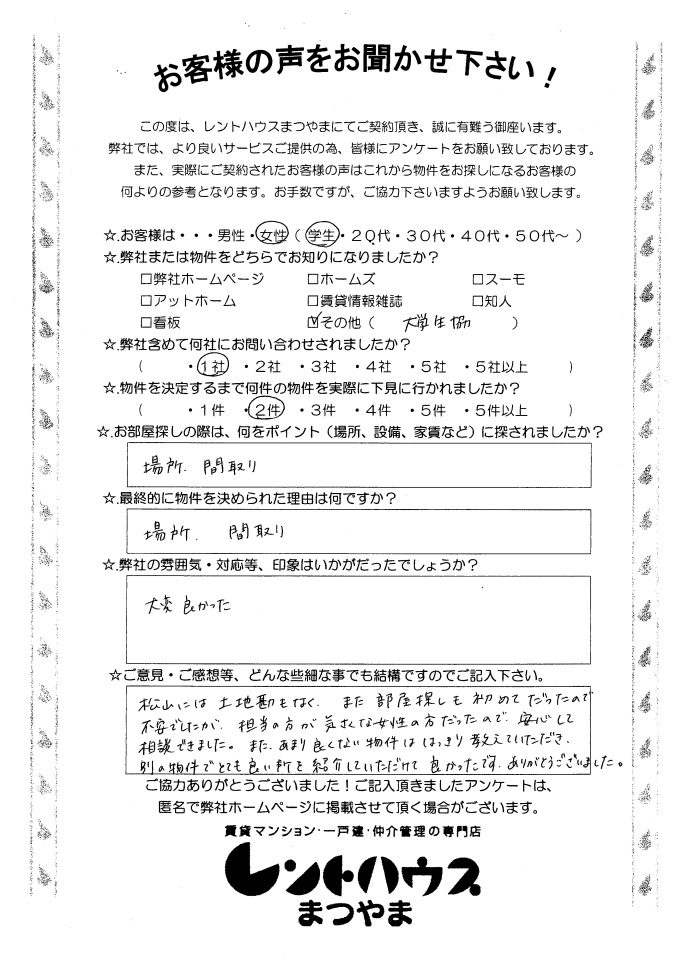 お客様の声をお聞かせ下さい！
この度は、レントハウスまつやまにてご契約頂き、誠に有難う御座います。
弊社では、より良いサービスご提供の為、皆様にアンケートをお願い致しております。
また、実際にご契約されたお客様の声はこれから物件をお探しになるお客様の
何よりの参考となります。お手数ですが、ご協力下さいますようお願い致します。
☆.お客様は・・・男性・女性（学生・２０代・３０代・４０代・５０代～）
☆.弊社または物件をどちらでお知りになりましたか？
□弊社ホームページ □ホームズ □スーモ
□アットホーム □賃貸情報雑誌 □知人
□看板 ☑その他（ 大学生協 ）
☆.弊社含めて何社にお問い合わせされましたか？
（ ・１社 ・２社 ・３社 ・４社 ・５社 ・５社以上 ）
☆.物件を決定するまで何件の物件を実際に下見に行かれましたか？
（ ・１件 ・２件 ・３件 ・４件 ・５件 ・５件以上 ）
☆.お部屋探しの際は、何をポイント（場所、設備、家賃など）に探されましたか？
場所、間取り
☆.最終的に物件を決められた理由は何ですか？
場所、間取り
☆.弊社の雰囲気・対応等、印象はいかがだったでしょうか？
大変良かった
☆ご意見・ご感想等、どんな些細な事でも結構ですのでご記入下さい。
松山には土地勘もなく、また部屋探しも初めてだったので
不安でしたが、担当の方が気さくな女性の方だったので、安心して
相談できました。また、あまり良くない物件ははっきり教えていただき、
別の物件でとても良い所を紹介していただけて良かったです。ありがとうございました。
ご協力ありがとうございました！ご記入頂きましたアンケートは、
匿名で弊社ホームページに掲載させて頂く場合がございます。
賃貸マンション・一戸建・仲介管理の専門店
レントハウス
まつやま